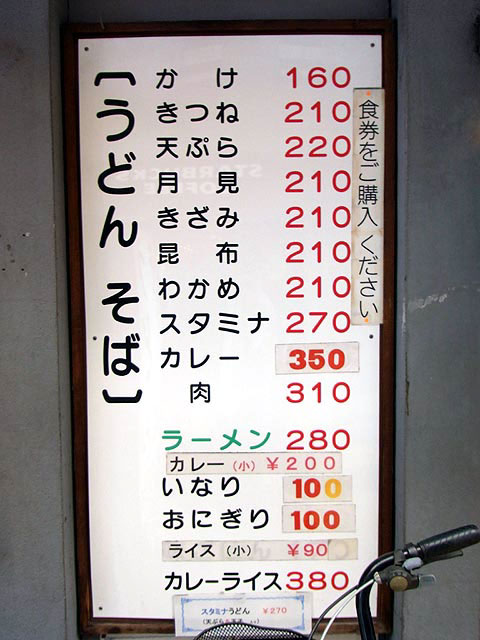 〔うどん そば〕
かけ 160
きつね 210
天ぷら 220
月見 210
きざみ 210
昆布 210
わかめ 210
スタミナ 270
カレー 350
肉 310
食券をご購入ください
ラーメン 280
カレー(小) ¥200
いなり 100
おにぎり 100
ライス(小) ¥90
カレーライス 380
スタミナうどん ¥270
(天ぷら